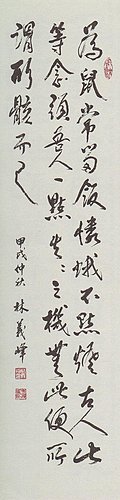 為鼠常留飯憐蛾不點燈古人此
等念頭吾人一點生々之機無此便所
謂形骸而已
甲戌仲秋 林義峰